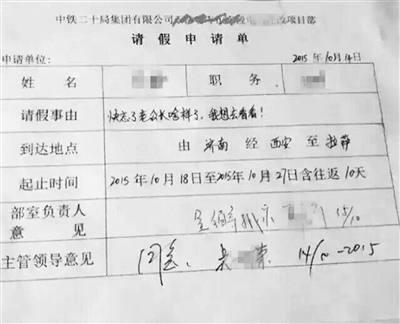 中铁二十局集团有限公司 改项目部
请假申请单
申请单位: 2015年10月14日
姓名 职务
请假事由 快忘了老公长啥样了,我想去看看!
到达地点 由 济南 经 西安 至 拉萨
起止时间 2015年10月18日至2015年10月27日含往返10天
部室负责人
意见 15/10
主管领导意见 同意. 14/10-2015